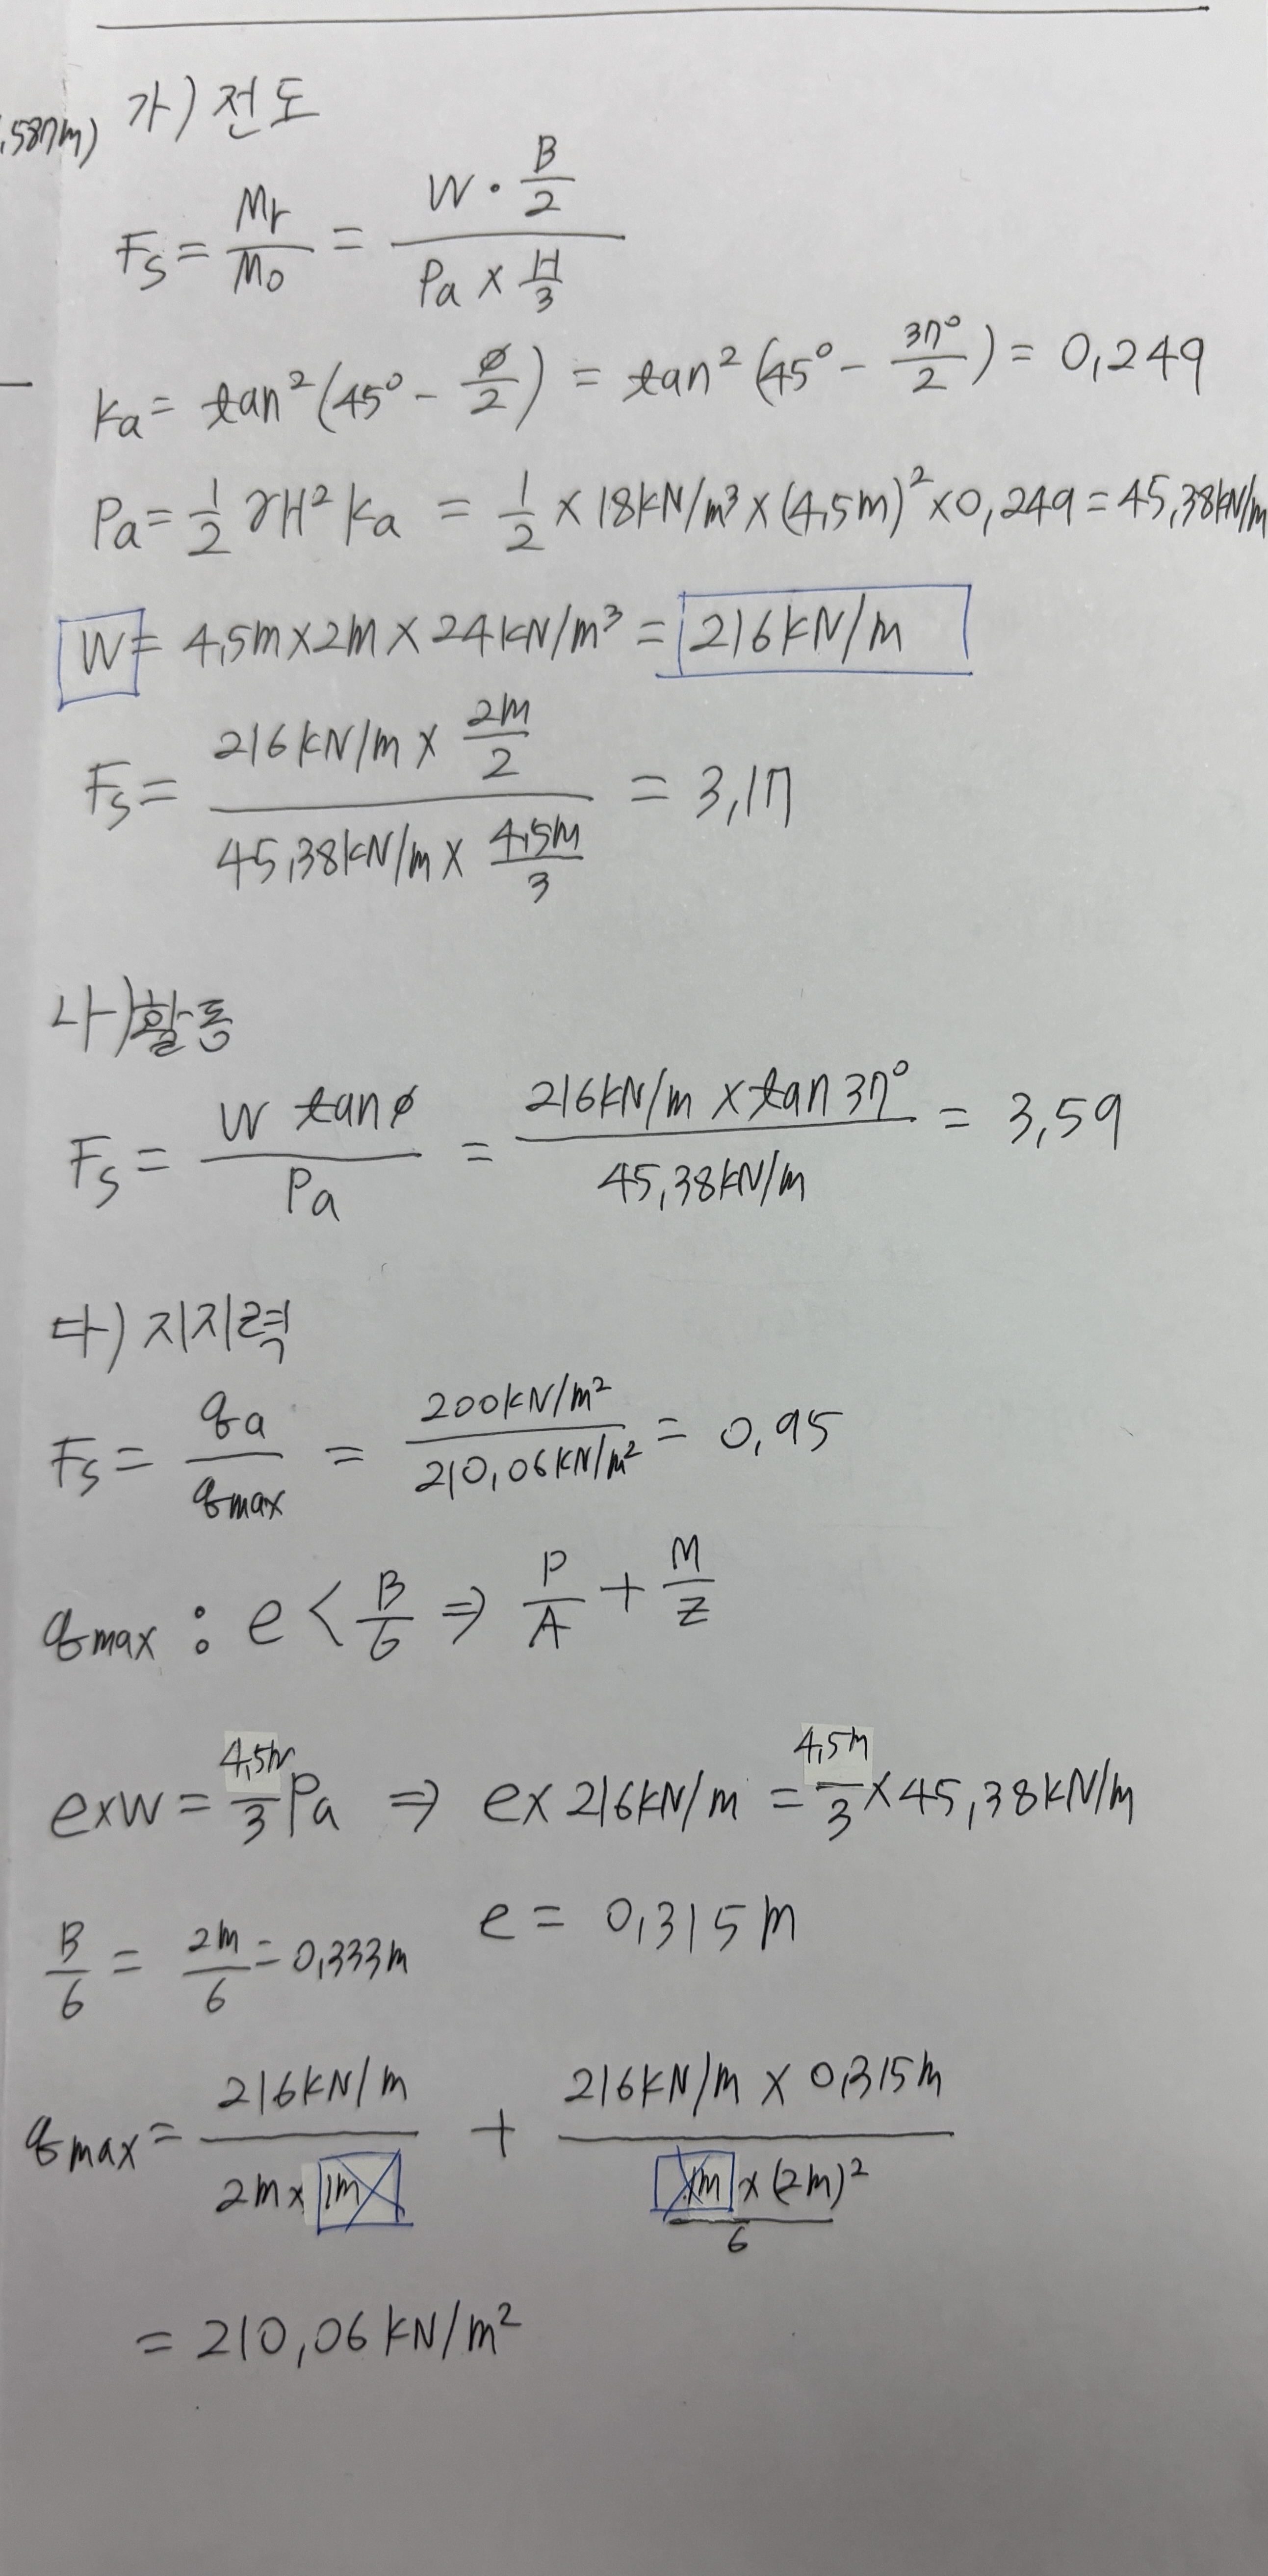 .587m)
가) 전도
Fs = Mr/Mo = (W · B/2)/(Pa × H/3)
Ka = tan²(45° - ø/2) = tan²(45° - 37°/2) = 0,249
Pa = 1/2 γH² Ka = 1/2 × 18kN/m³ × (4,5m)² × 0,249 = 45,38kN/m
W = 4,5m × 2m × 24kN/m³ = 216kN/m
Fs = (216kN/m × 2m/2)/(45,38kN/m × 4,5m/3) = 3,17
나) 활동
Fs = W tanø/Pa = (216kN/m × tan37°)/(45,38kN/m) = 3,59
다) 지지력
Fs = qa/qmax = 200kN/m²/210,06kN/m² = 0,95
qmax : e < B/6 ⇒ P/A + M/Z
e×W = 4,5m/3 Pa ⇒ e × 216kN/m = 4,5m/3 × 45,38kN/m
B/6 = 2m/6 = 0,333m e = 0,315m
qmax = 216kN/m/(2m × 1m) + (216kN/m × 0,315m)/(1m × (2m)²/6)
= 210,06kN/m²